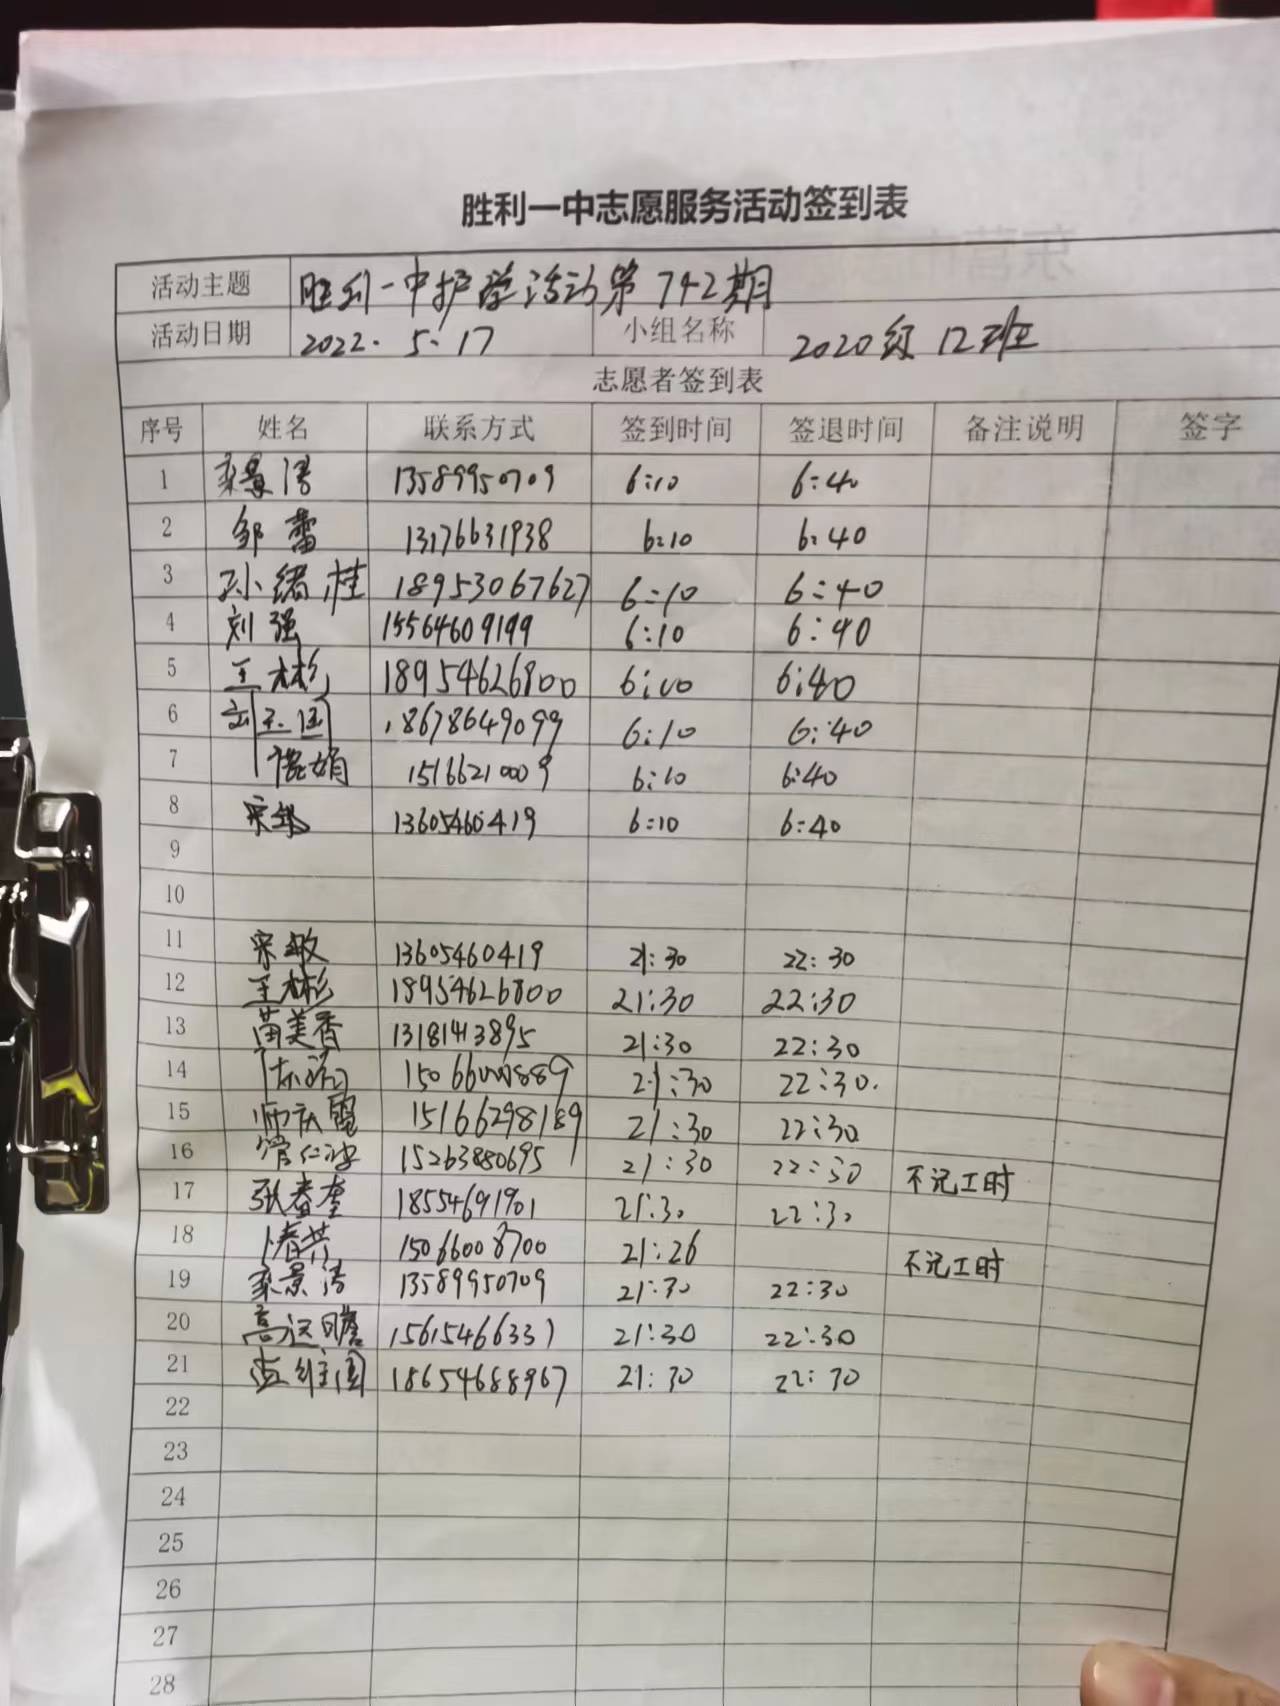 胜利一中志愿服务活动签到表
活动主题 胜利一中护学活动第742期
活动日期 2022.5.17 小组名称 2020级12班
志愿者签到表
序号 姓名 联系方式 签到时间 签退时间 备注说明 签字
1 景涛 13589950709 6:10 6:40
2 邹蕾 13176631938 6:10 6:40
3 孙绪桂 18953067627 6:10 6:40
4 刘强 15564609199 6:10 6:40
5 王彬彬 18954626800 6:10 6:40
6 18678649099 6:10 6:40
7 娟 15166210009 6:10 6:40
8 宋敏 13605460419 6:10 6:40
9
10
11 宋敏 13605460419 21:30 22:30
12 王彬彬 18954626800 21:30 22:30
13 苗美香 13181413895 21:30 22:30
14 21:30 22:30.
15 师庆霞 15166298189 21:30 22:30
16 管仁波 15263880695 21:30 22:30 不记工时
17 张春奎 18554691901 21:30 22:30
18 15066008700 21:26 不记工时
19 景涛 13589950709 21:30 22:30
20 高运瞻 15615466331 21:30 22:30
21 维国 18654688967 21:30 22:30
22
23
24
25
26
27
28